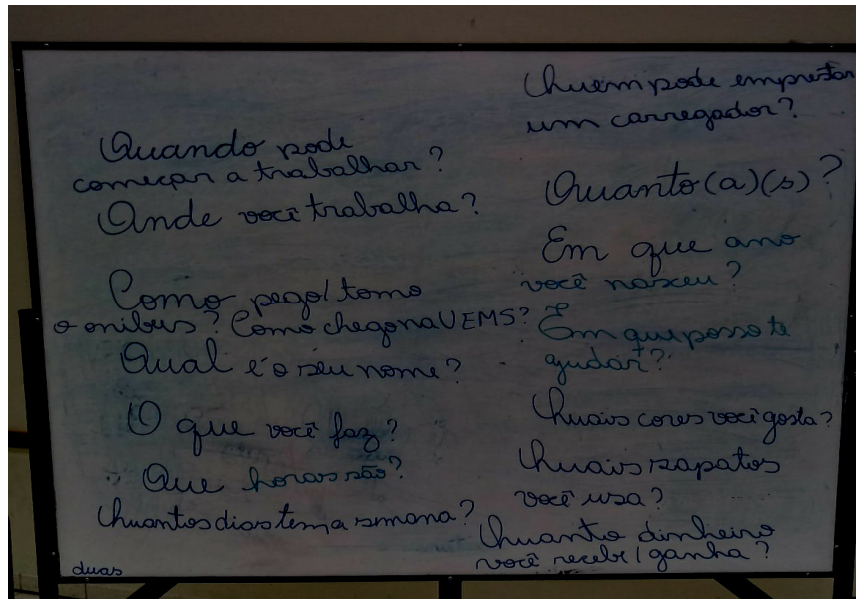 Quando pode
começar a trabalhar?
Onde você trabalha?
Como pego/tomo
o onibus? Como chego na UEMS?
Qual é o seu nome?
O que você faz?
Que horas são?
Quantos dias tem a semana?
duas
Quem pode emprestar
um carregador?
Quanto(a)(s)?
Em que ano
você nasceu?
Em que posso te
ajudar?
Quais cores você gosta?
Quais sapatos
você usa?
Quanto dinheiro
você recebe/ganha?